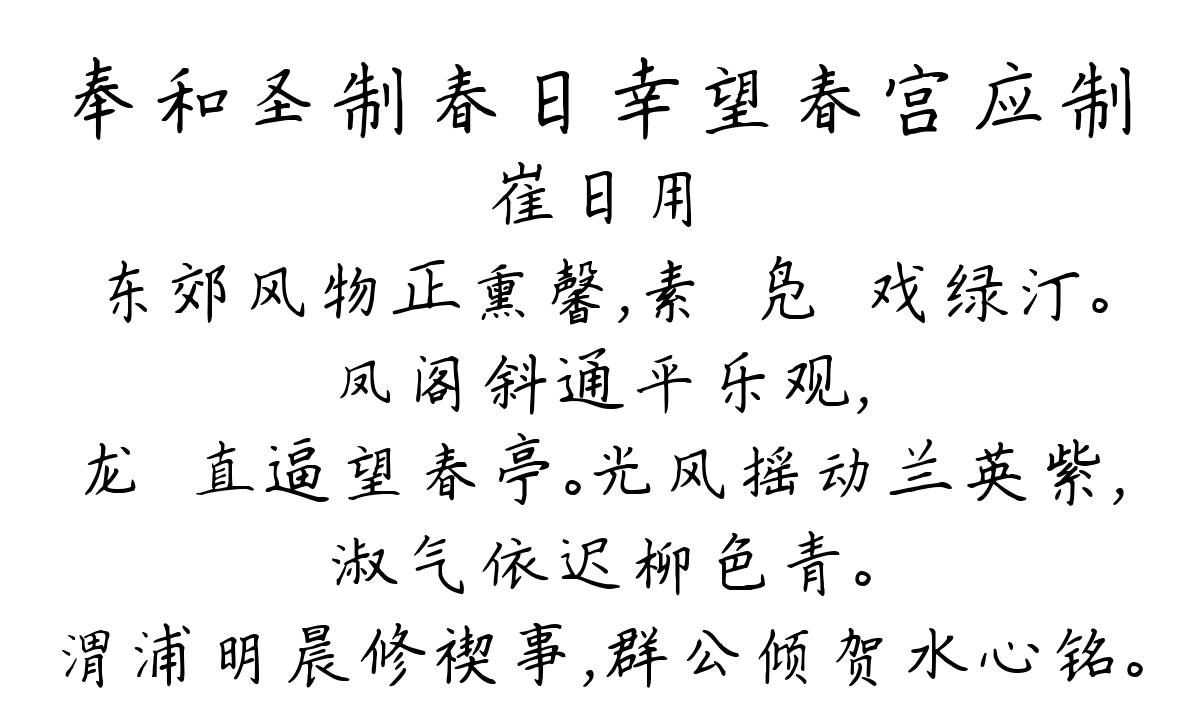 奉和圣制春日幸望春宫应制
崔日用
东郊风物正熏馨,素 凫 戏绿汀。
凤阁斜通平乐观,
龙 直逼望春亭。光风摇动兰英紫,
淑气依迟柳色青。
渭浦明晨修禊事,群公倾贺水心铭。